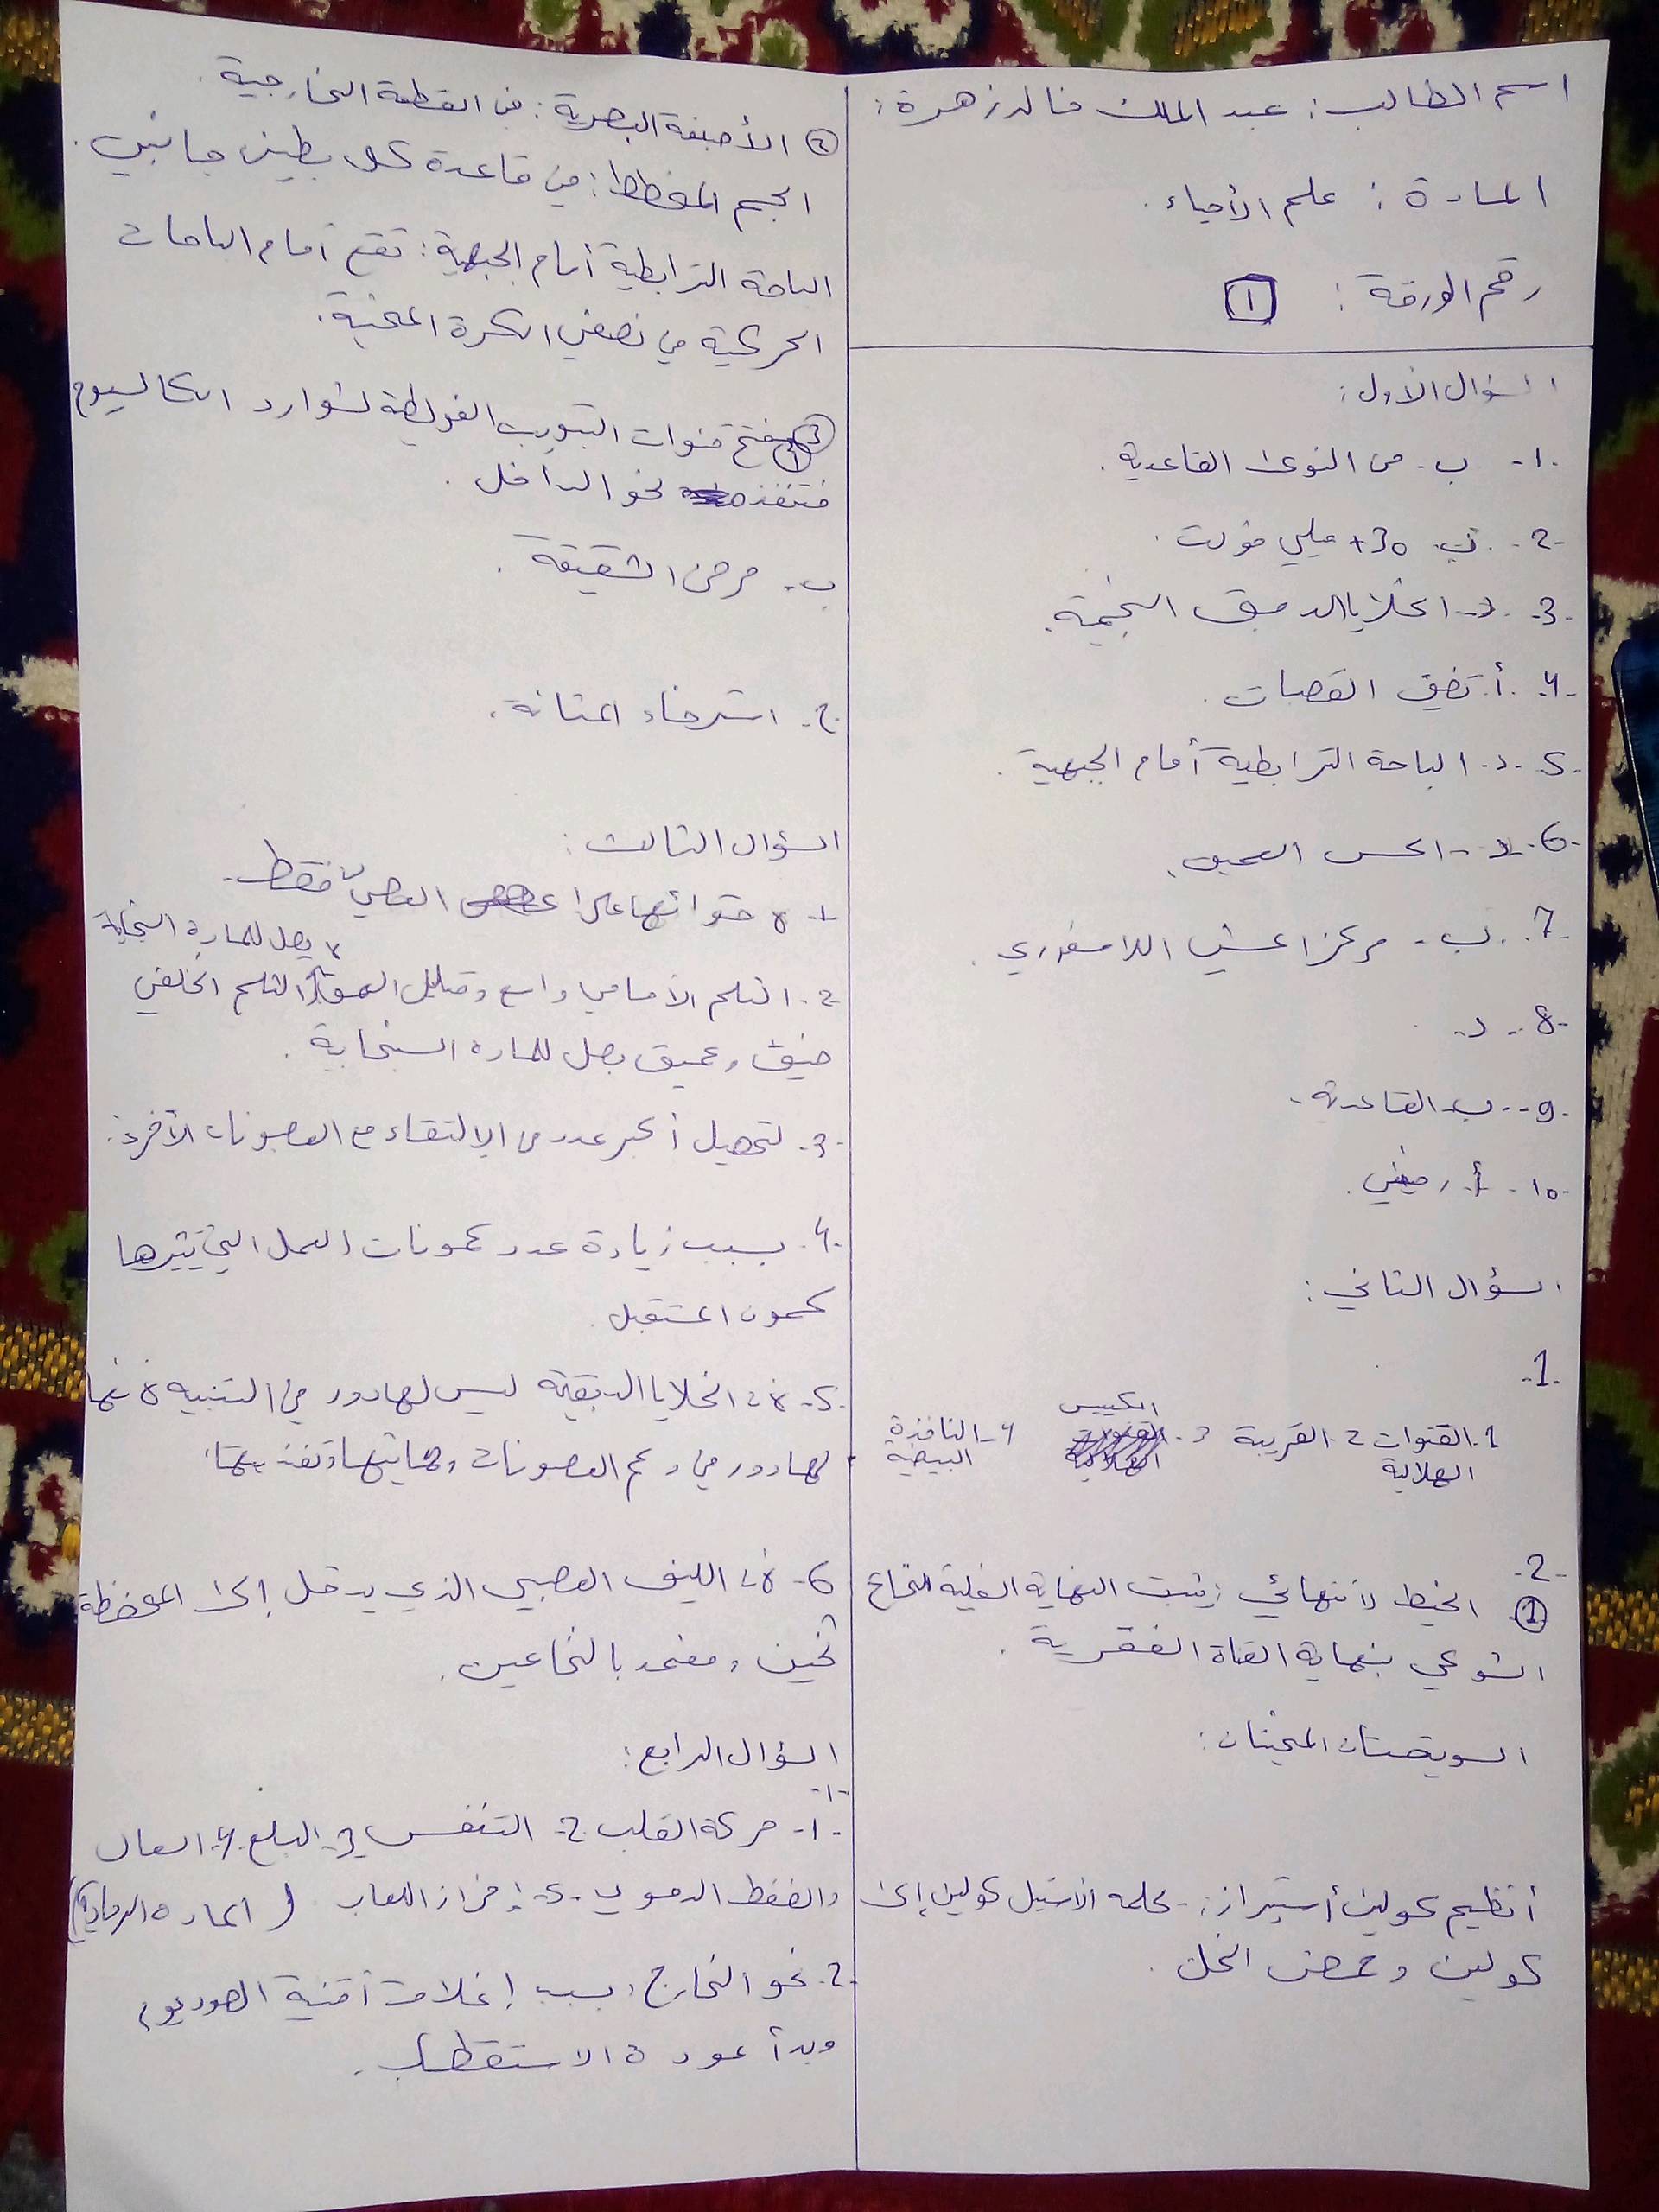 اسم الطالب: عبد الملك خالد زهرة:
المادة: علم الأحياء.
رقم الورقة: 1
السؤال الأول:
1- ب- من النوى القاعدية.
2- ب- +30 ميلي فولت.
3- د- الخلايا الدبقية النجمية.
4- أ- تضيق القصبات.
5- د- الباحة الترابطية أمام الجبهية.
6- د- الحس العميق.
7- ب- مركزا عش اللامفوري.
8- د-
9- ب- القاعدية.
10- أ-
السؤال الثاني:
1-
1- القنوات الهلالية 2- القريبة 3- الكييس 4- النافذة البيضية
2-
① الخيط الانتهائي: يثبت النهاية السفلية للنخاع
الشوكي بنهاية القناة الفقرية.
السويقتان المخيتان:
أنظيم كولين أستيراز: حلمه الأستيل كولين إلى
كولين وحمض الخل.
② الأصبغة البصرية: في القطعة الخارجية.
الجسم المخطط: في قاعدة كل بطين جانبي.
الباحة الترابطية أمام الجبهية: تقع أمام الباحات
الحركية في نصفي الكرة المخية.
③ ① تفتح قنوات التبويب الفولطية لشوارد الكالسيوم
فتنفذ نحو الداخل.
ب- مرض الشقيقة.
ج- استرخاء المثانة.
السؤال الثالث:
1- لاحتوائها على العصي فقط.
2- الثلم الأمامي واسع وقليل العمق لا يصل للمادة السنجابية الثلم الخلفي
ضيق وعميق يصل للمادة السنجابية.
3- لتحصيل أكبر عدد من الإلتقاء مع العصبونات الأخرى.
4- بسبب زيادة عدد كمونات العمل التي يثيرها
كمون المستقبل.
5- لأن الخلايا الدبقية ليس لها دور في التنبيه لأنما
لها دور في دعم العصبونات وحمايتها وتغذيتها.
6- لأن الليف العصبي الذي يدخل إلى المحفظة
ثخين ومغمد بالنخاعين.
السؤال الرابع:
1-
1- حركة القلب 2- التنفس 3- البلع 4- السعال
والضغط الدموي 5- إفراز اللعاب (المادة الرمادية)
2- نحو الخارج، بسبب إغلاق أقنية الصوديوم
وبدأ عودة الاستقطاب.